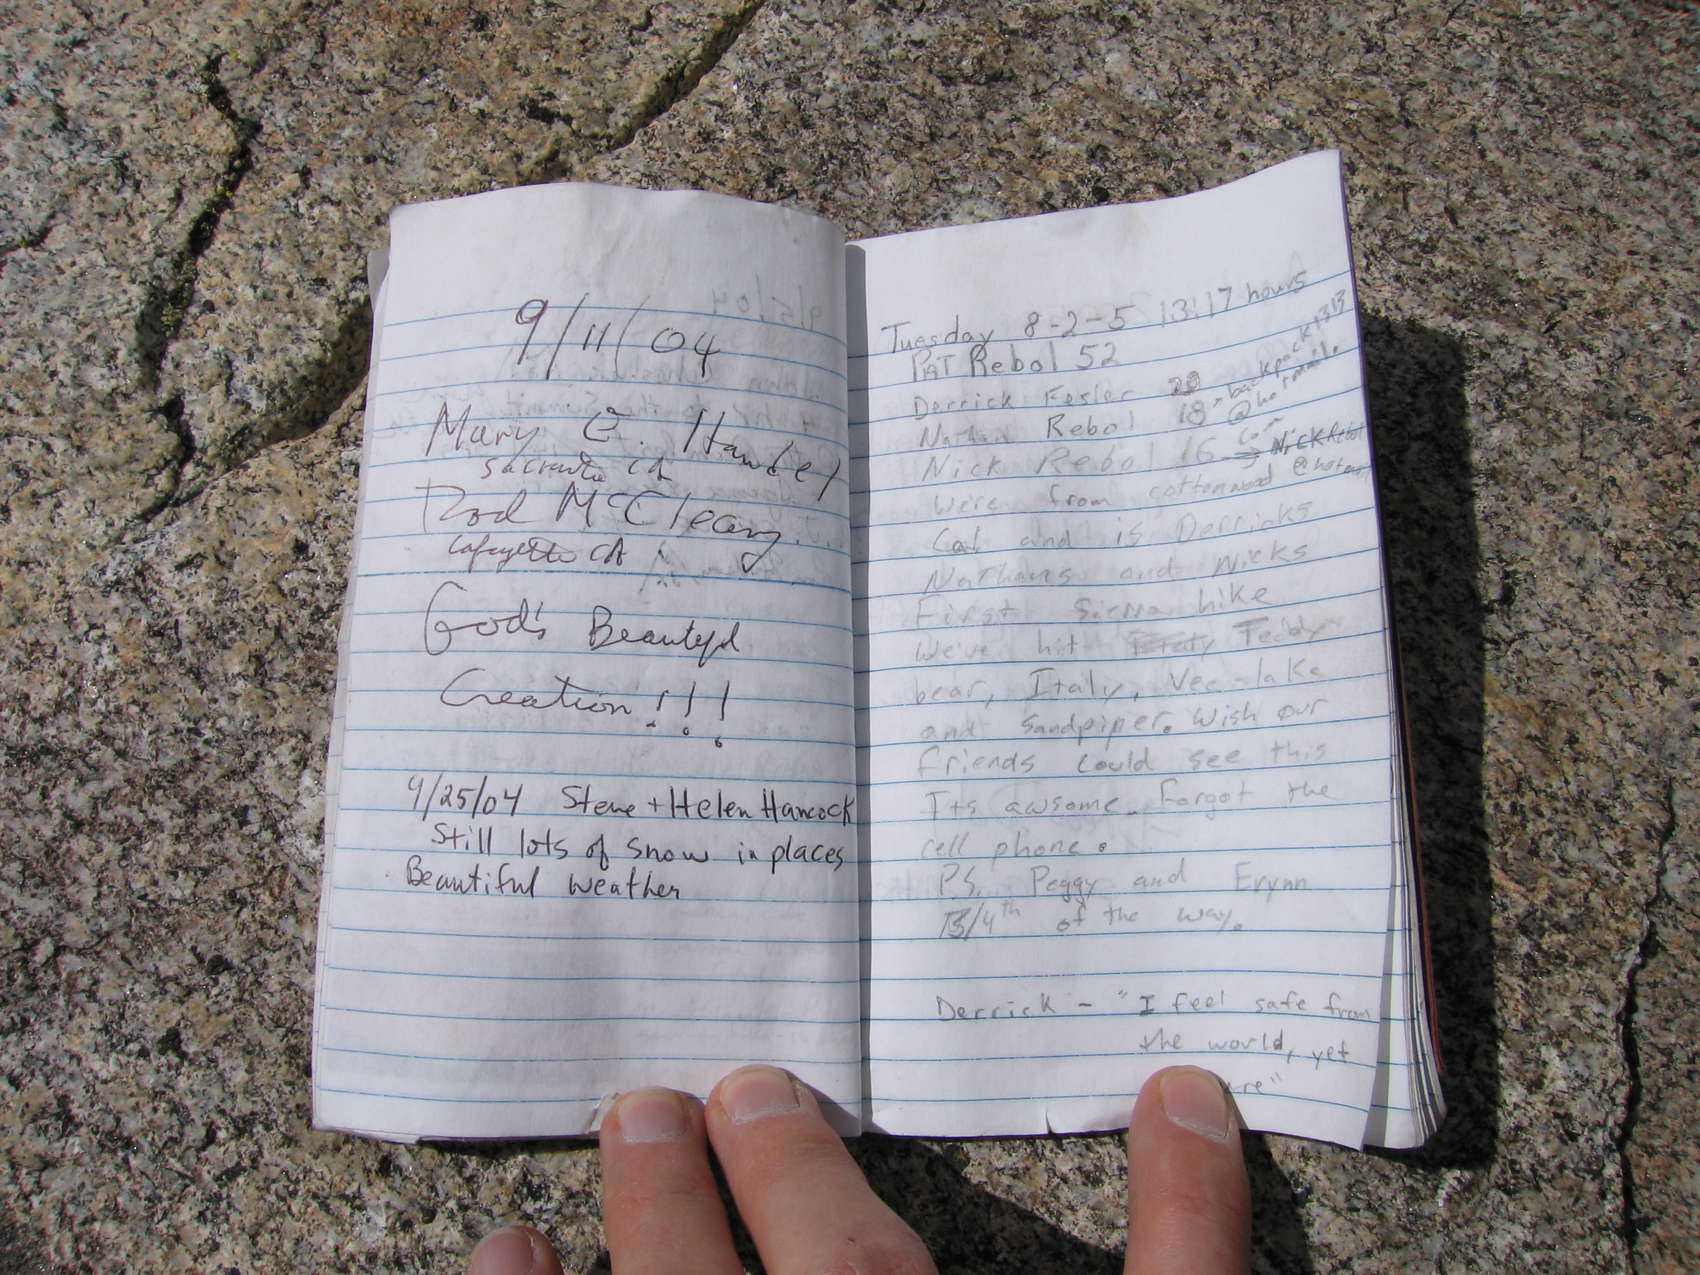 9/11/04
Mary E. Handel
Rod McCleary
Lafayette CA
God's Beautiful
Creation!!!
9/25/04 Steve + Helen Hancock
Still lots of snow in places
Beautiful weather
Tuesday 8-2-5 13:17 hours
PAT Rebol 52
Derrick Fesler 20
Nathan Rebol 18 - backpack1313
@ho tmail.
com
Nick Rebol 16 → Nick Rebol
@hotmail
Were from cottonwood
Cal and is Derricks
Nathans and Nicks
First Sierra hike
We've hit Teddy
bear, Italy, Vee-lake
and Sandpiper. Wish our
friends could see this
Its awsome. Forgot the
cell phone.
PS. Peggy and Erynn
3/4th of the way.
Derrick - "I feel safe from
the world, yet